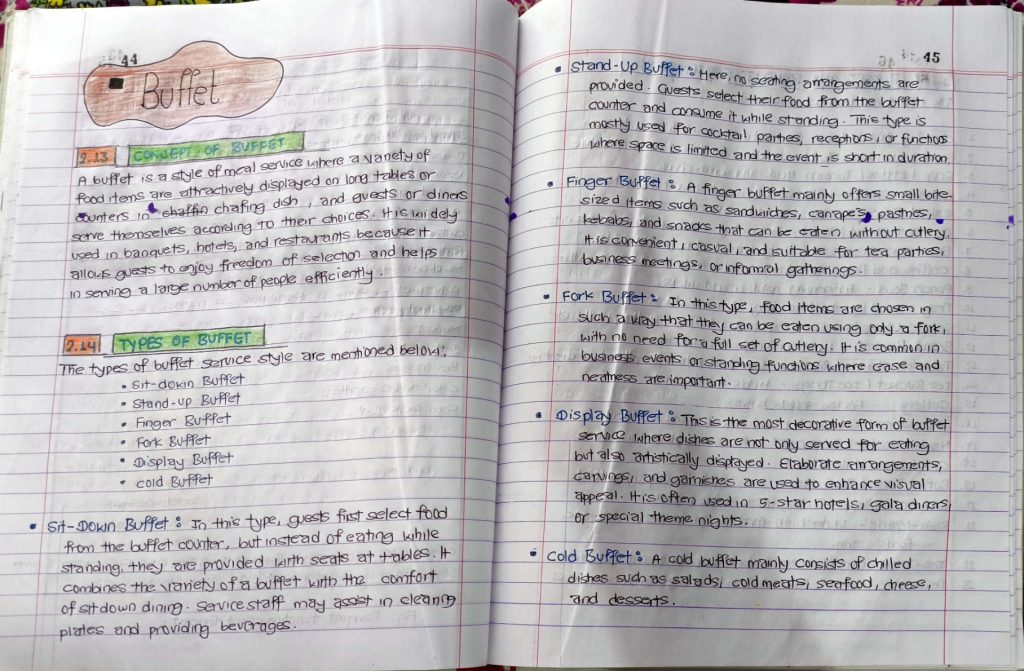 44
Buffet
2.13 CONCEPT OF BUFFET
A buffet is a style of meal service where a variety of
food items are attractively displayed on long tables or
counters in chaffin chafing dish, and guests or diners
serve themselves according to their choices. It is widely
used in banquets, hotels, and restaurants because it
allows guests to enjoy freedom of selection and helps
in serving a large number of people efficiently.
2.14 TYPES OF BUFFET
The types of buffet service style are mentioned below:
• Sit-down Buffet
• Stand-up Buffet
• Finger Buffet
• Fork Buffet
• Display Buffet
• Cold Buffet
• Sit-Down Buffet: In this type, guests first select food
from the buffet counter, but instead of eating while
standing, they are provided with seats at tables. It
combines the variety of a buffet with the comfort
of sit down dining. Service staff may assist in clearing
plates and providing beverages.
45
• Stand-Up Buffet: Here, no seating arrangements are
provided. Guests select their food from the buffet
counter and consume it while standing. This type is
mostly used for cocktail parties, receptions, or functions
where space is limited and the event is short in duration.
• Finger Buffet: A finger buffet mainly offers small bite-
sized items such as sandwiches, canapes, pastries,
kebabs, and snacks that can be eaten without cutlery.
It is convenient, casual, and suitable for tea parties,
business meetings, or informal gatherings.
• Fork Buffet: In this type, food items are chosen in
such a way that they can be eaten using only a fork,
with no need for a full set of cutlery. It is common in
business events or standing functions where ease and
neatness are important.
• Display Buffet: This is the most decorative form of buffet
service where dishes are not only served for eating
but also artistically displayed. Elaborate arrangements,
carvings, and garnishes are used to enhance visual
appeal. It is often used in 5-star hotels, gala diners
or special theme nights.
• Cold Buffet: A cold buffet mainly consists of chilled
dishes such as salads, cold meats, seafood, cheese,
and desserts.